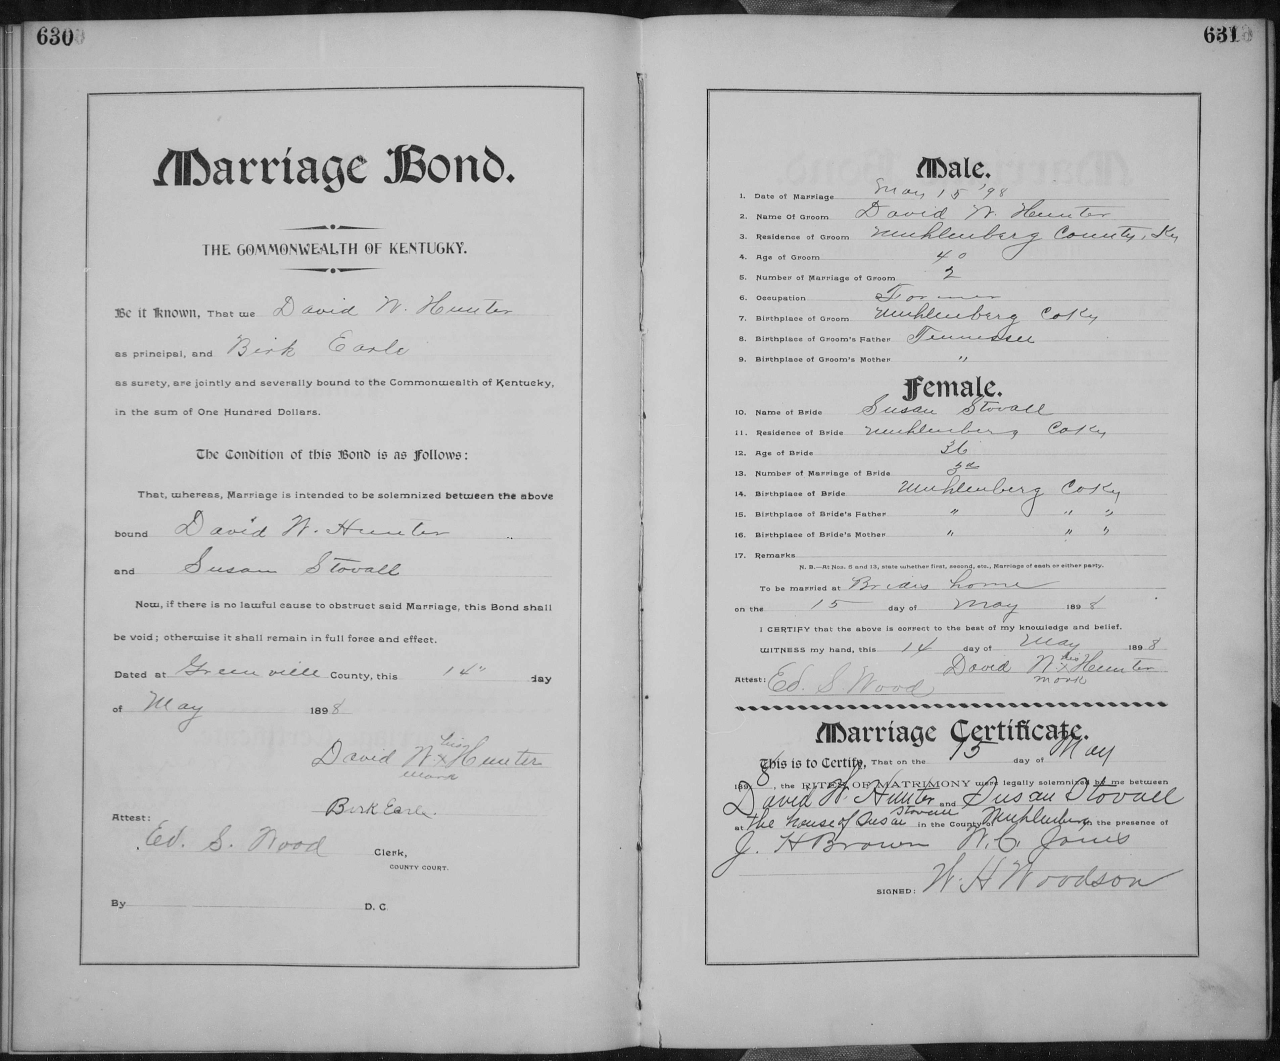 630
Marriage Bond.
THE COMMONWEALTH OF KENTUCKY.
Be it Known, That we David W. Hunter
as principal, and Birk Earle
as surety, are jointly and severally bound to the Commonwealth of Kentucky,
in the sum of One Hundred Dollars.
The Condition of this Bond is as Follows:
That, whereas, Marriage is intended to be solemnized between the above
bound David W. Hunter
and Susan Stovall
Now, if there is no lawful cause to obstruct said Marriage, this Bond shall
be void; otherwise it shall remain in full force and effect.
Dated at Greenville County, this 14" day
of May 1898
his
David W x Hunter
mark
Birk Earle.
Attest:
Ed. S. Wood Clerk,
COUNTY COURT.
By D. C.
631
Male.
1. Date of Marriage May 15 '98
2. Name Of Groom David W. Hunter
3. Residence of Groom Muhlenberg County, Ky
4. Age of Groom 40
5. Number of Marriage of Groom 2
6. Occupation Farmer
7. Birthplace of Groom Muhlenberg Co Ky
8. Birthplace of Groom's Father Tennessee
9. Birthplace of Groom's Mother "
Female.
10. Name of Bride Susan Stovall
11. Residence of Bride Muhlenberg Co Ky
12. Age of Bride 36
13. Number of Marriage of Bride
14. Birthplace of Bride Muhlenberg Co Ky
15. Birthplace of Bride's Father " " "
16. Birthplace of Bride's Mother " " "
17. Remarks
N. B.—At Nos. 5 and 13, state whether first, second, etc., Marriage of each or either party.
To be married at Brides home
on the 15 day of May 1898
I CERTIFY that the above is correct to the best of my knowledge and belief.
WITNESS my hand, this 14 day of May 1898
David W his x Hunter
mark
Attest: Ed. S. Wood
Marriage Certificate.
This is to Certify, That on the 15 day of May
1898, the RITES OF MATRIMONY were legally solemnized by me between
David W. Hunter and Susan Stovall
at the house of Susan Stovall in the County of Muhlenberg in the presence of
J. H Brown W. C. Jones
SIGNED: W H Woodson